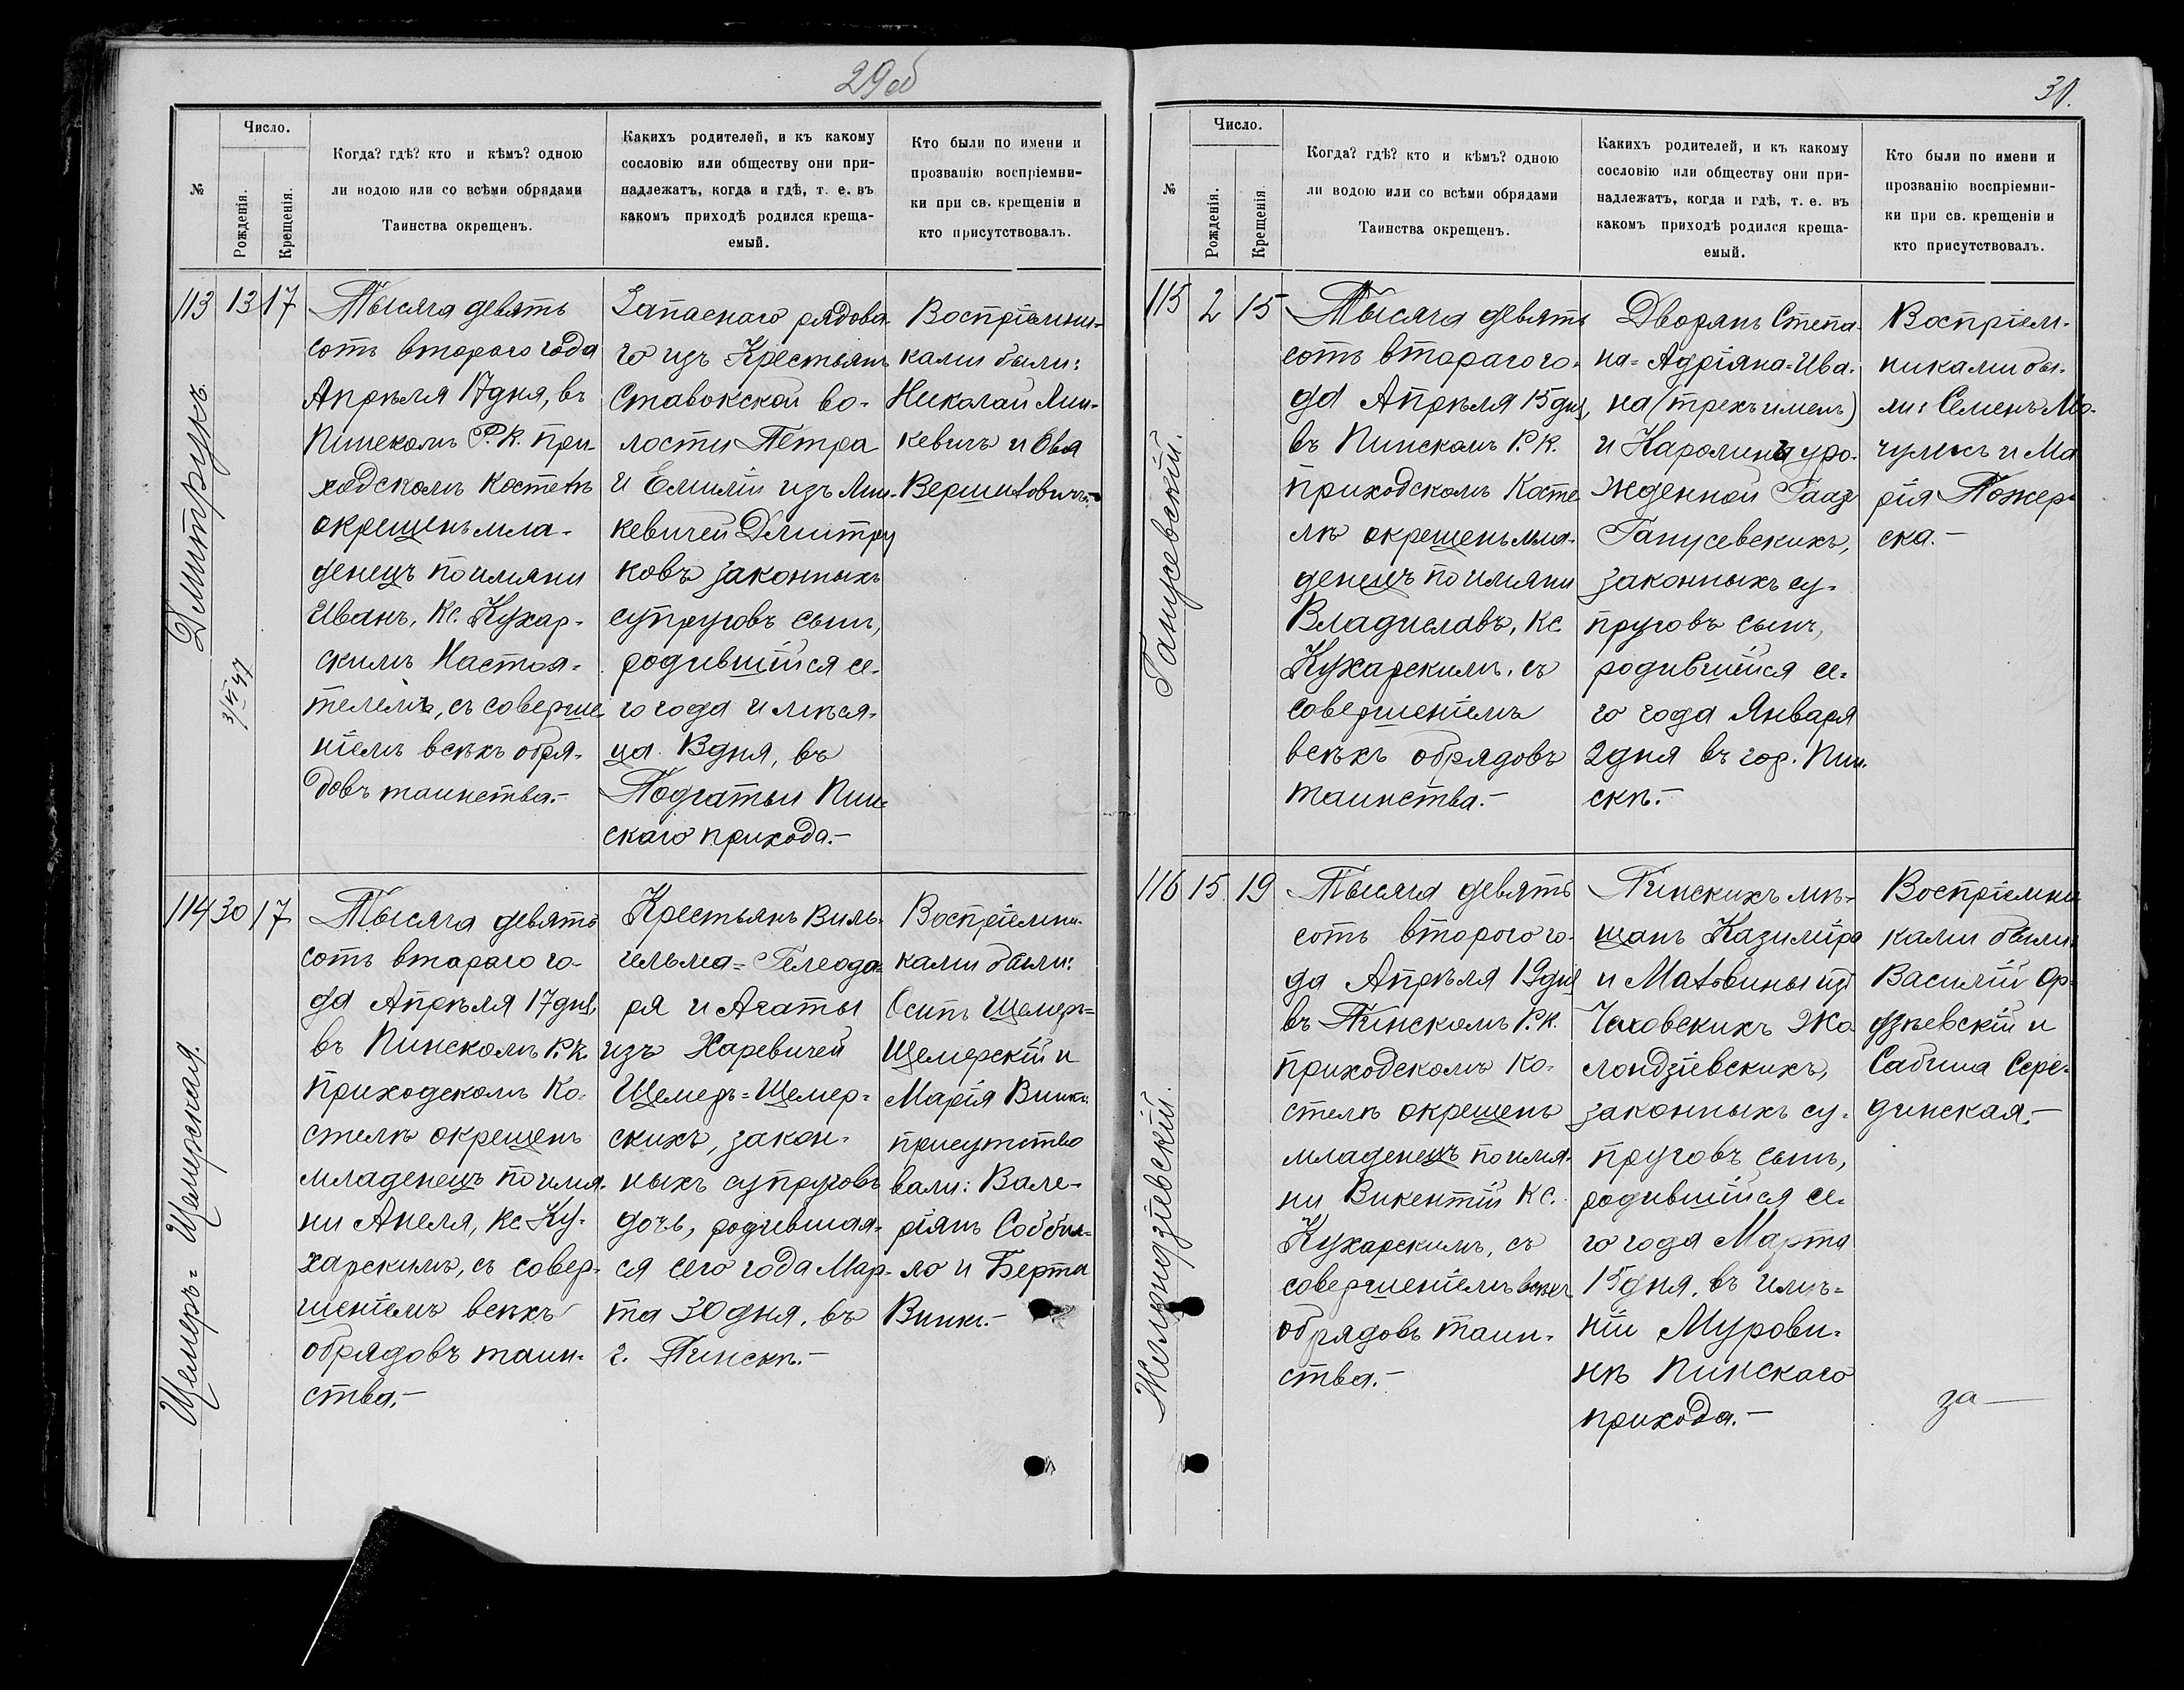 29об
№
Число.
Рожденія.
Крещенія.
Когда? гдѣ? кто и кѣмъ? одною
ли водою или со всѣми обрядами
Таинства окрещенъ.
Какихъ родителей, и къ какому
сословію или обществу они при-
надлежатъ, когда и гдѣ, т. е. въ
какомъ приходѣ родился креща-
емый.
Кто были по имени и
прозванію воспріемни-
ки при св. крещеніи и
кто присутствовалъ.
113
13
17
Дмитрукъ.
Тысяча девять
сотъ второго года
Апрѣля 17 дня, въ
Пинскомъ Р. К. При-
ходскомъ Костелѣ
окрещенъ мла-
денецъ по имяни
Иванъ, Кс. Кухар-
скимъ Настоя-
телемъ, съ соверше-
ніемъ всѣхъ обря-
довъ таинства.-
Запаснаго рядова-
го изъ Крестьянъ
Ставокской во-
лости Петра
и Емиліи изъ Мин-
кевичей Дмитру
ковъ законныхъ
супруговъ сынъ,
родившійся се-
го года и мѣся-
ца 13 дня, въ
Подгатьи Пин-
скаго прихода.-
Воспріемни-
ками были:
Николай Мин-
кевичъ и Ева
114
30
17
Щемеръ-Щемерская.
Тысяча девять
сотъ втораго го-
да Апрѣля 17 дня,
въ Пинскомъ Р. К.
Приходскомъ Ко-
стелѣ окрещенъ
младенецъ по имя-
ни Анеля, Кс. Ку-
харскимъ, съ совер-
шеніемъ всѣхъ
обрядовъ таин-
ства.-
Крестьянъ Виль-
гельма=Гелеода-
ря и Агаты
изъ Харевичей
Щемеръ=Щемер-
скихъ, закон-
ныхъ супруговъ
дочь, родившая-
ся сего года Мар-
та 30 дня, въ
г. Пинскѣ.-
Воспріемни-
ками были:
Осипъ Щемеръ=
Щемерскій и
Марія Винкъ
присутство
вали: Вале-
ріянъ
ло и Берта
Винкъ.-
31.
№
Число.
Рожденія.
Крещенія
Когда? гдѣ? кто и кѣмъ? одною
ли водою или со всѣми обрядами
Таинства окрещенъ.
Какихъ родителей, и къ какому
сословію или обществу они при-
надлежатъ, когда и гдѣ, т. е. въ
какомъ приходѣ родился креща-
емый.
Кто были по имени и
прозванію воспріемни-
ки при св. крещеніи и
кто присутствовалъ.
115
2
15
Ганусевскій.
Тысяча девять
сотъ втораго го-
да Апрѣля 15 дня,
въ Пинскомъ Р. К.
Приходскомъ Косте
лѣ окрещенъ мла-
денецъ по имяни
Владиславъ, Кс
Кухарскимъ, съ
совершеніемъ
всѣхъ обрядовъ
таинства.-
Дворянъ Степа-
на=Адріяна=Ива-
на (трехъ именъ)
и Каролины уро-
жденной Гааз
Ганусевскихъ,
законныхъ су-
пруговъ сынъ,
родившійся се-
го года Января
2 дня въ гор. Пин-
скѣ.-
Воспріем-
никами бы-
ли: Семенъ Мо-
чулъскъ и Ма
рія Пожер-
ска.-
116
15
19
Желондзіевскій.
Тысяча девять
сотъ второго го-
да Апрѣля 19 дня
въ Пинскомъ Р. К.
Приходскомъ Ко-
стелѣ окрещенъ
младенецъ по имя-
ни Викентій Кс.
Кухарскимъ, съ
совершеніемъ всѣхъ
обрядовъ таин-
ства.-
Пинскихъ мѣ-
щанъ Казиміра
и Матвины изъ
Чаховскихъ Же
лондзіевскихъ,
законныхъ су-
пруговъ сынъ,
родившійся се-
го года Марта
15 дня, въ имѣ-
ніи Мурови-
нѣ Пинскаго
прихода.-
Воспріемни
ками были:
Василій Ор-
дзѣевскій и
Сабина Сере-
динская.-
за —